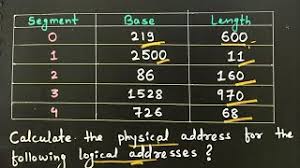 Segment Base Length
0 219 600
1 2500 11
2 86 160
3 1528 970
4 726 68
Calculate the physical address for the
following logical addresses ?